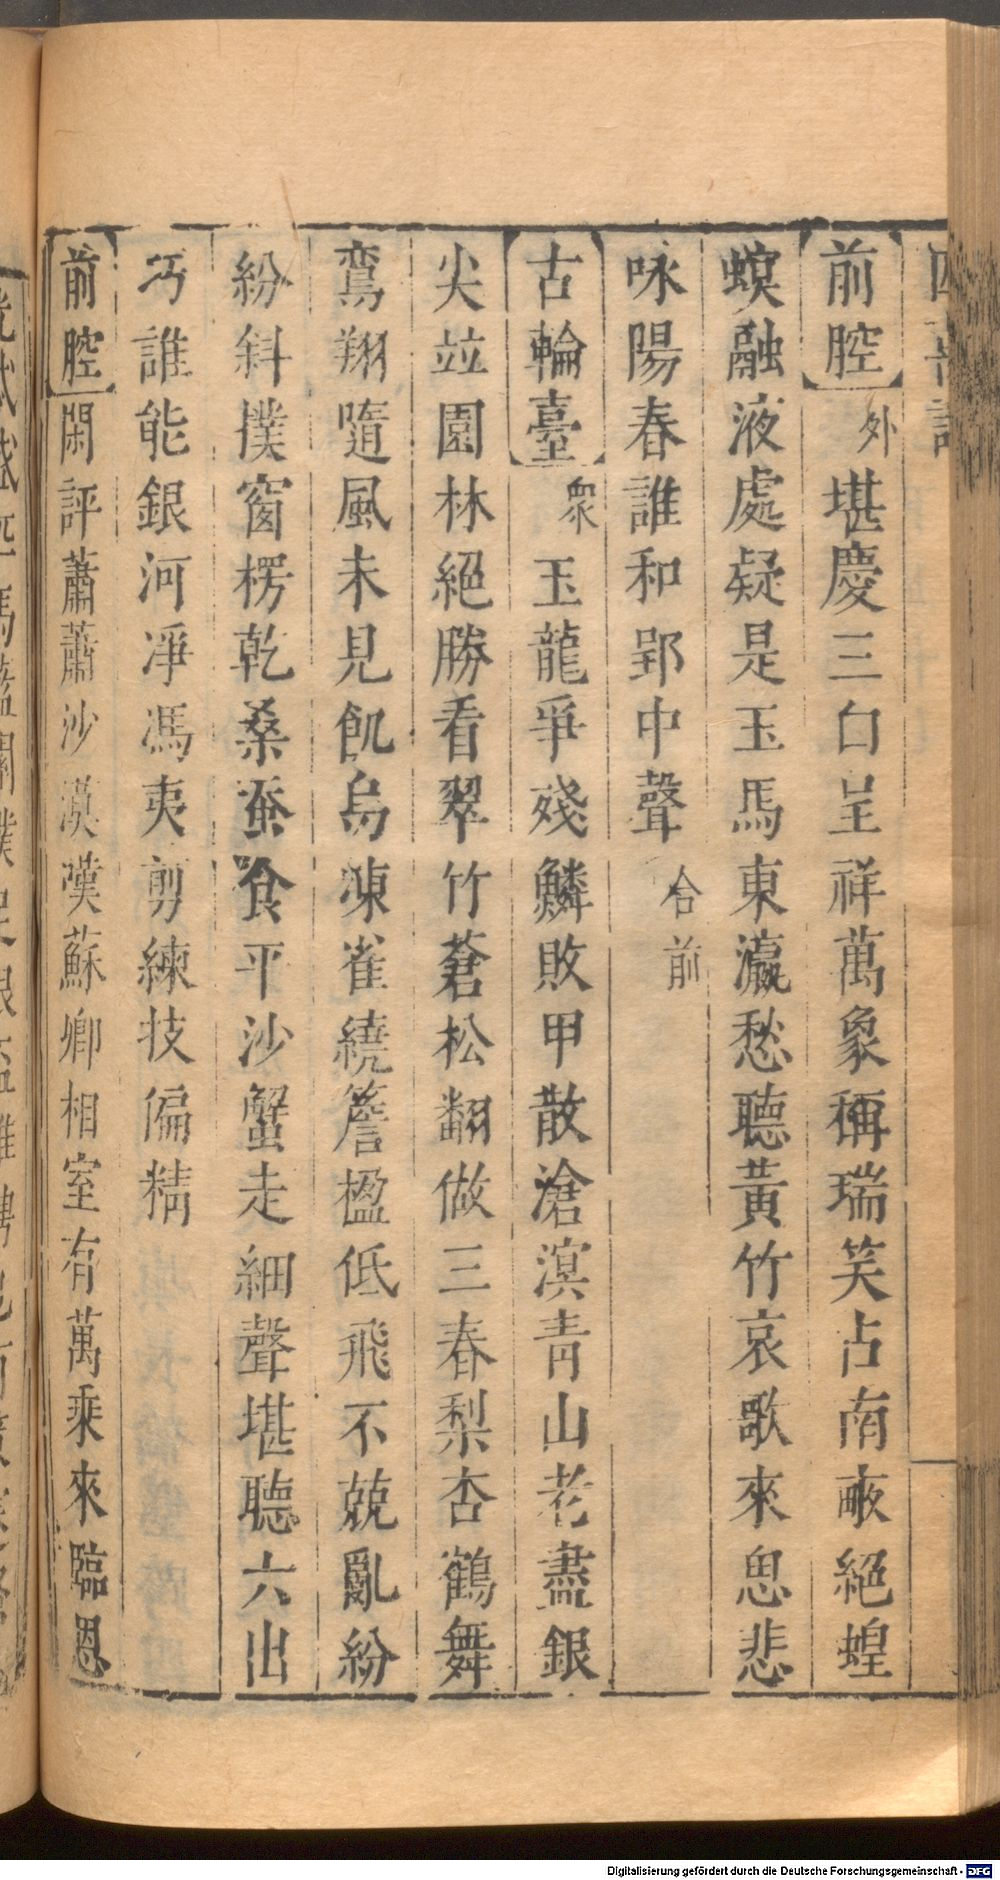 前腔外堪慶三白呈祥萬象稱瑞笑占南畝絕蝗
螟融液處疑是玉馬東瀛愁聽黃竹哀歌來思悲
咏陽春誰和郢中聲合前
古輪臺衆玉龍爭殘鱗敗甲散滄溟青山老盡銀
尖竝園林絕勝看翠竹蒼松翻做三春梨杏鶴舞
鸞翔隨風未見飢烏凍雀繞簷楹低飛不兢亂紛
紛斜撲窗楞乾桑蚕食平沙蟹走細聲堪聽六出
巧誰能銀河凈馮夷剪練技偏精
前腔閑評蕭蕭沙漠嘆蘇卿相室有萬乘來臨恩
Digitalisierung gefördert durch die Deutsche Forschungsgemeinschaft - DFG